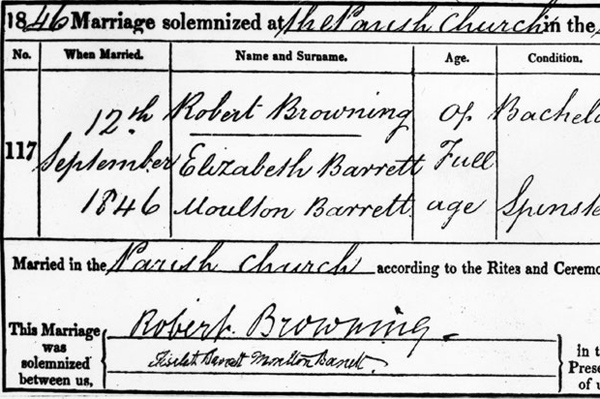 1846 Marriage solemnized at the Parish Church in the
No. When Married. Name and Surname. Age. Condition.
12th Robert Browning Of Bachelo
117 September Elizabeth Barrett Full
1846 Moulton Barrett. age Spinste
Married in the Parish Church according to the Rites and Ceremo
This Marriage was solemnized between us,
Robert Browning.
Barrett Moulton Barrett.
in t
Prese
of u